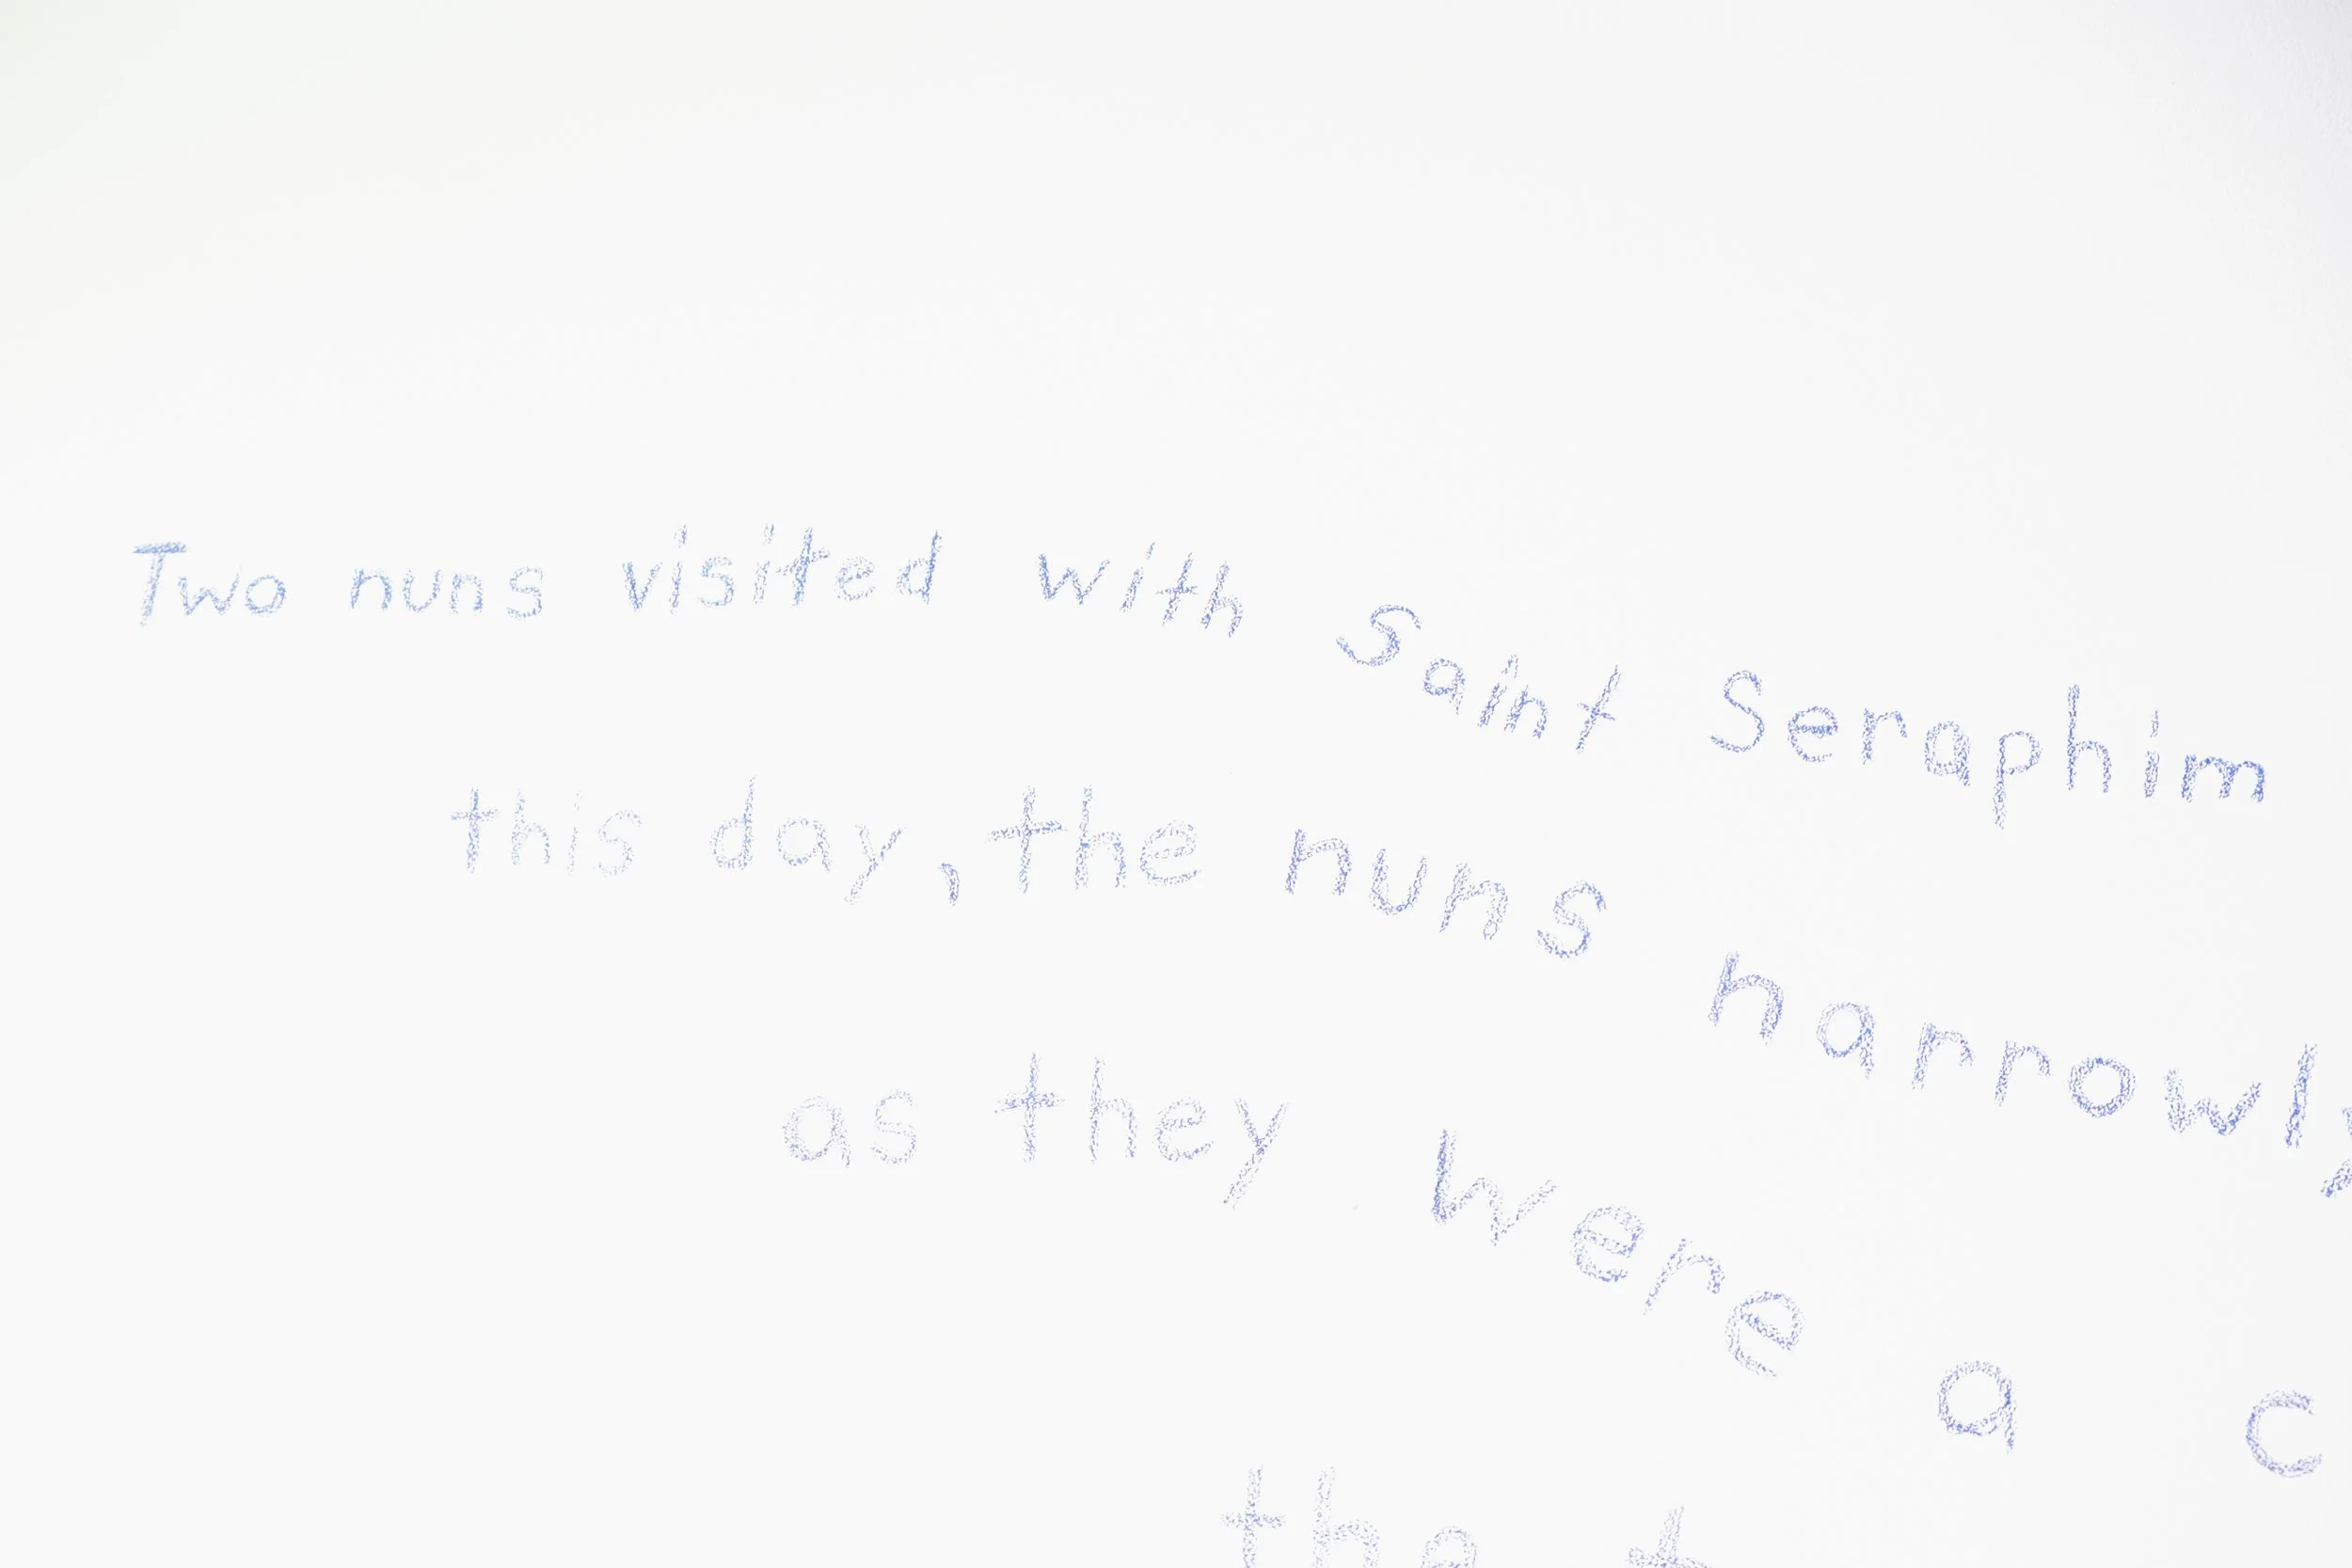 Two nuns visited with Saint Seraphim
this day, the nuns narrowly
as they were a c
the t